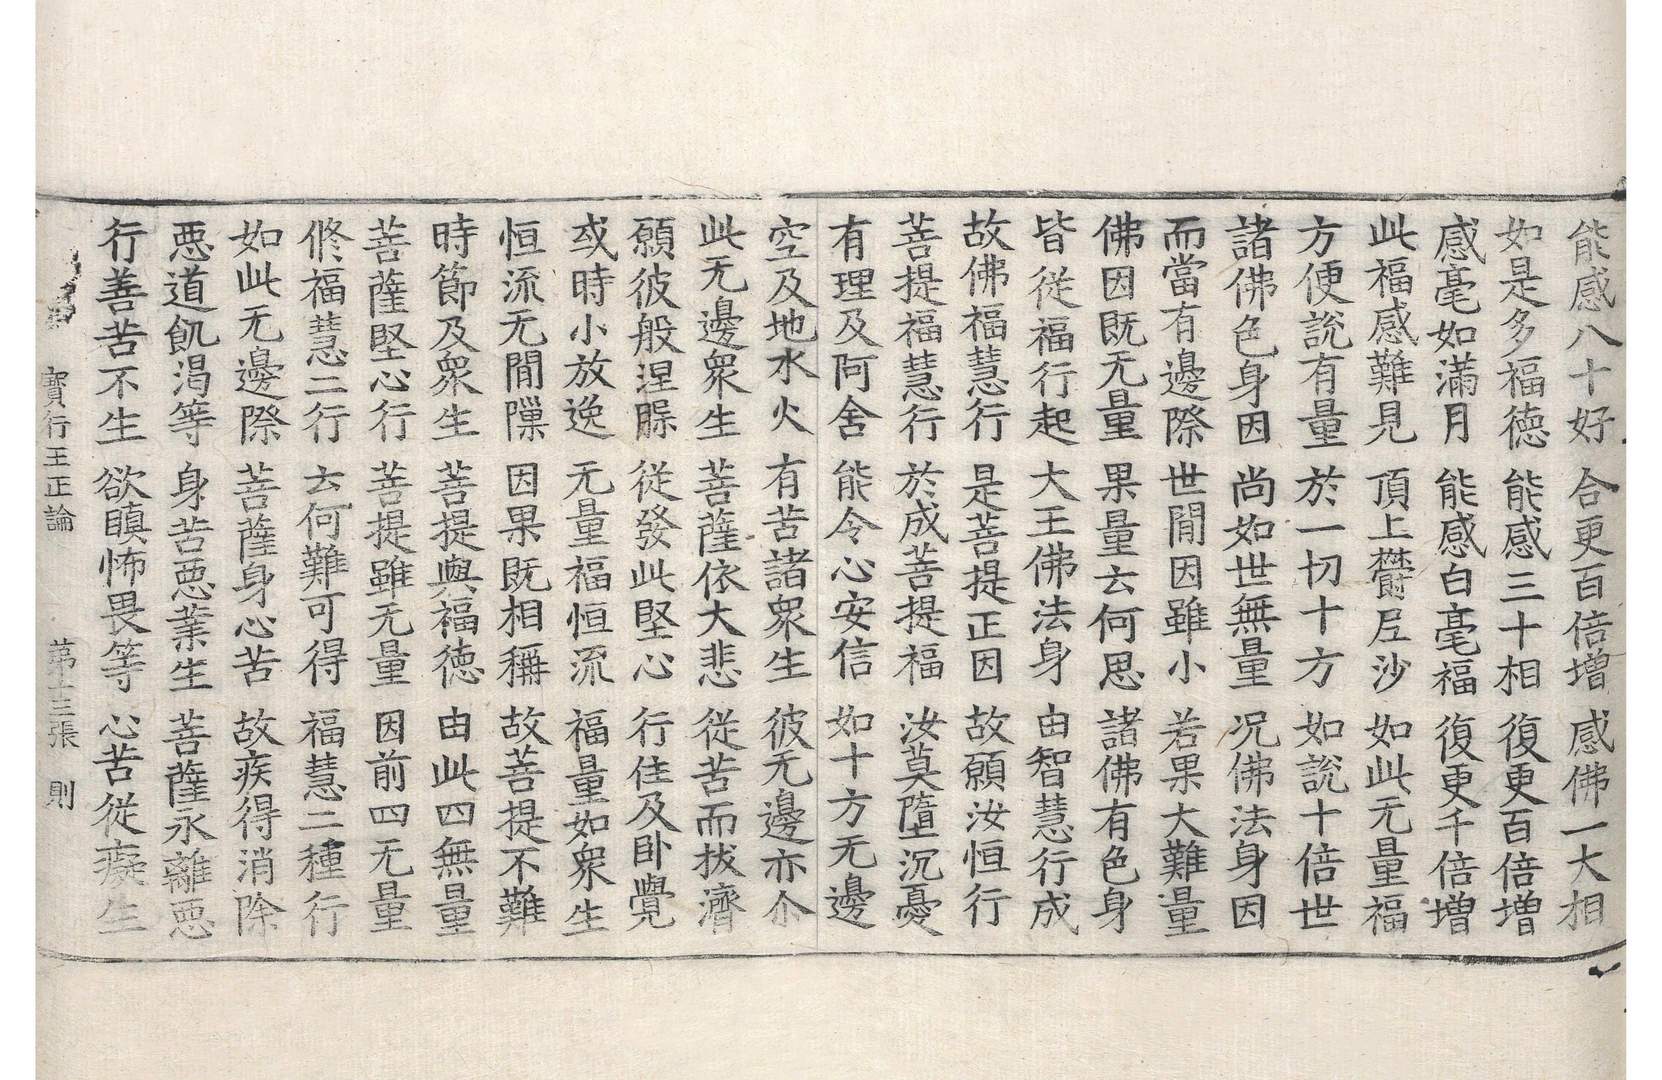 能感八十好 合更百倍增 感佛一大相
如是多福德 能感三十相 復更百倍增
感毫如滿月 能感白毫福 復更千倍增
此福感難見 頂上欝尼沙 如此无量福
方便說有量 於一切十方 如說十倍世
諸佛色身因 尚如世無量 况佛法身因
而當有邊際 世閒因雖小 若果大難量
佛因既无量 果量云何思 諸佛有色身
皆從福行起 大王佛法身 由智慧行成
故佛福慧行 是菩提正因 故願汝恒行
菩提福慧行 於成菩提福 汝莫墮沉憂
有理及阿舍 能令心安信 如十方无邊
空及地水火 有苦諸衆生 彼无邊亦尒
此无邊衆生 菩薩依大悲 從苦而拔濟
願彼般涅㬹 從發此堅心 行住及卧覺
或時小放逸 无量福恒流 福量如衆生
恒流无閒隟 因果既相稱 故菩提不難
時節及衆生 菩提與福德 由此四無量
菩薩堅心行 菩提雖无量 因前四无量
脩福慧二行 云何難可得 福慧二種行
如此无邊際 菩薩身心苦 故疾得消除
惡道飢渴等 身苦惡業生 菩薩永離惡
行善苦不生 欲瞋怖畏等 心苦從癡生
寶行王正論 第十三張 則